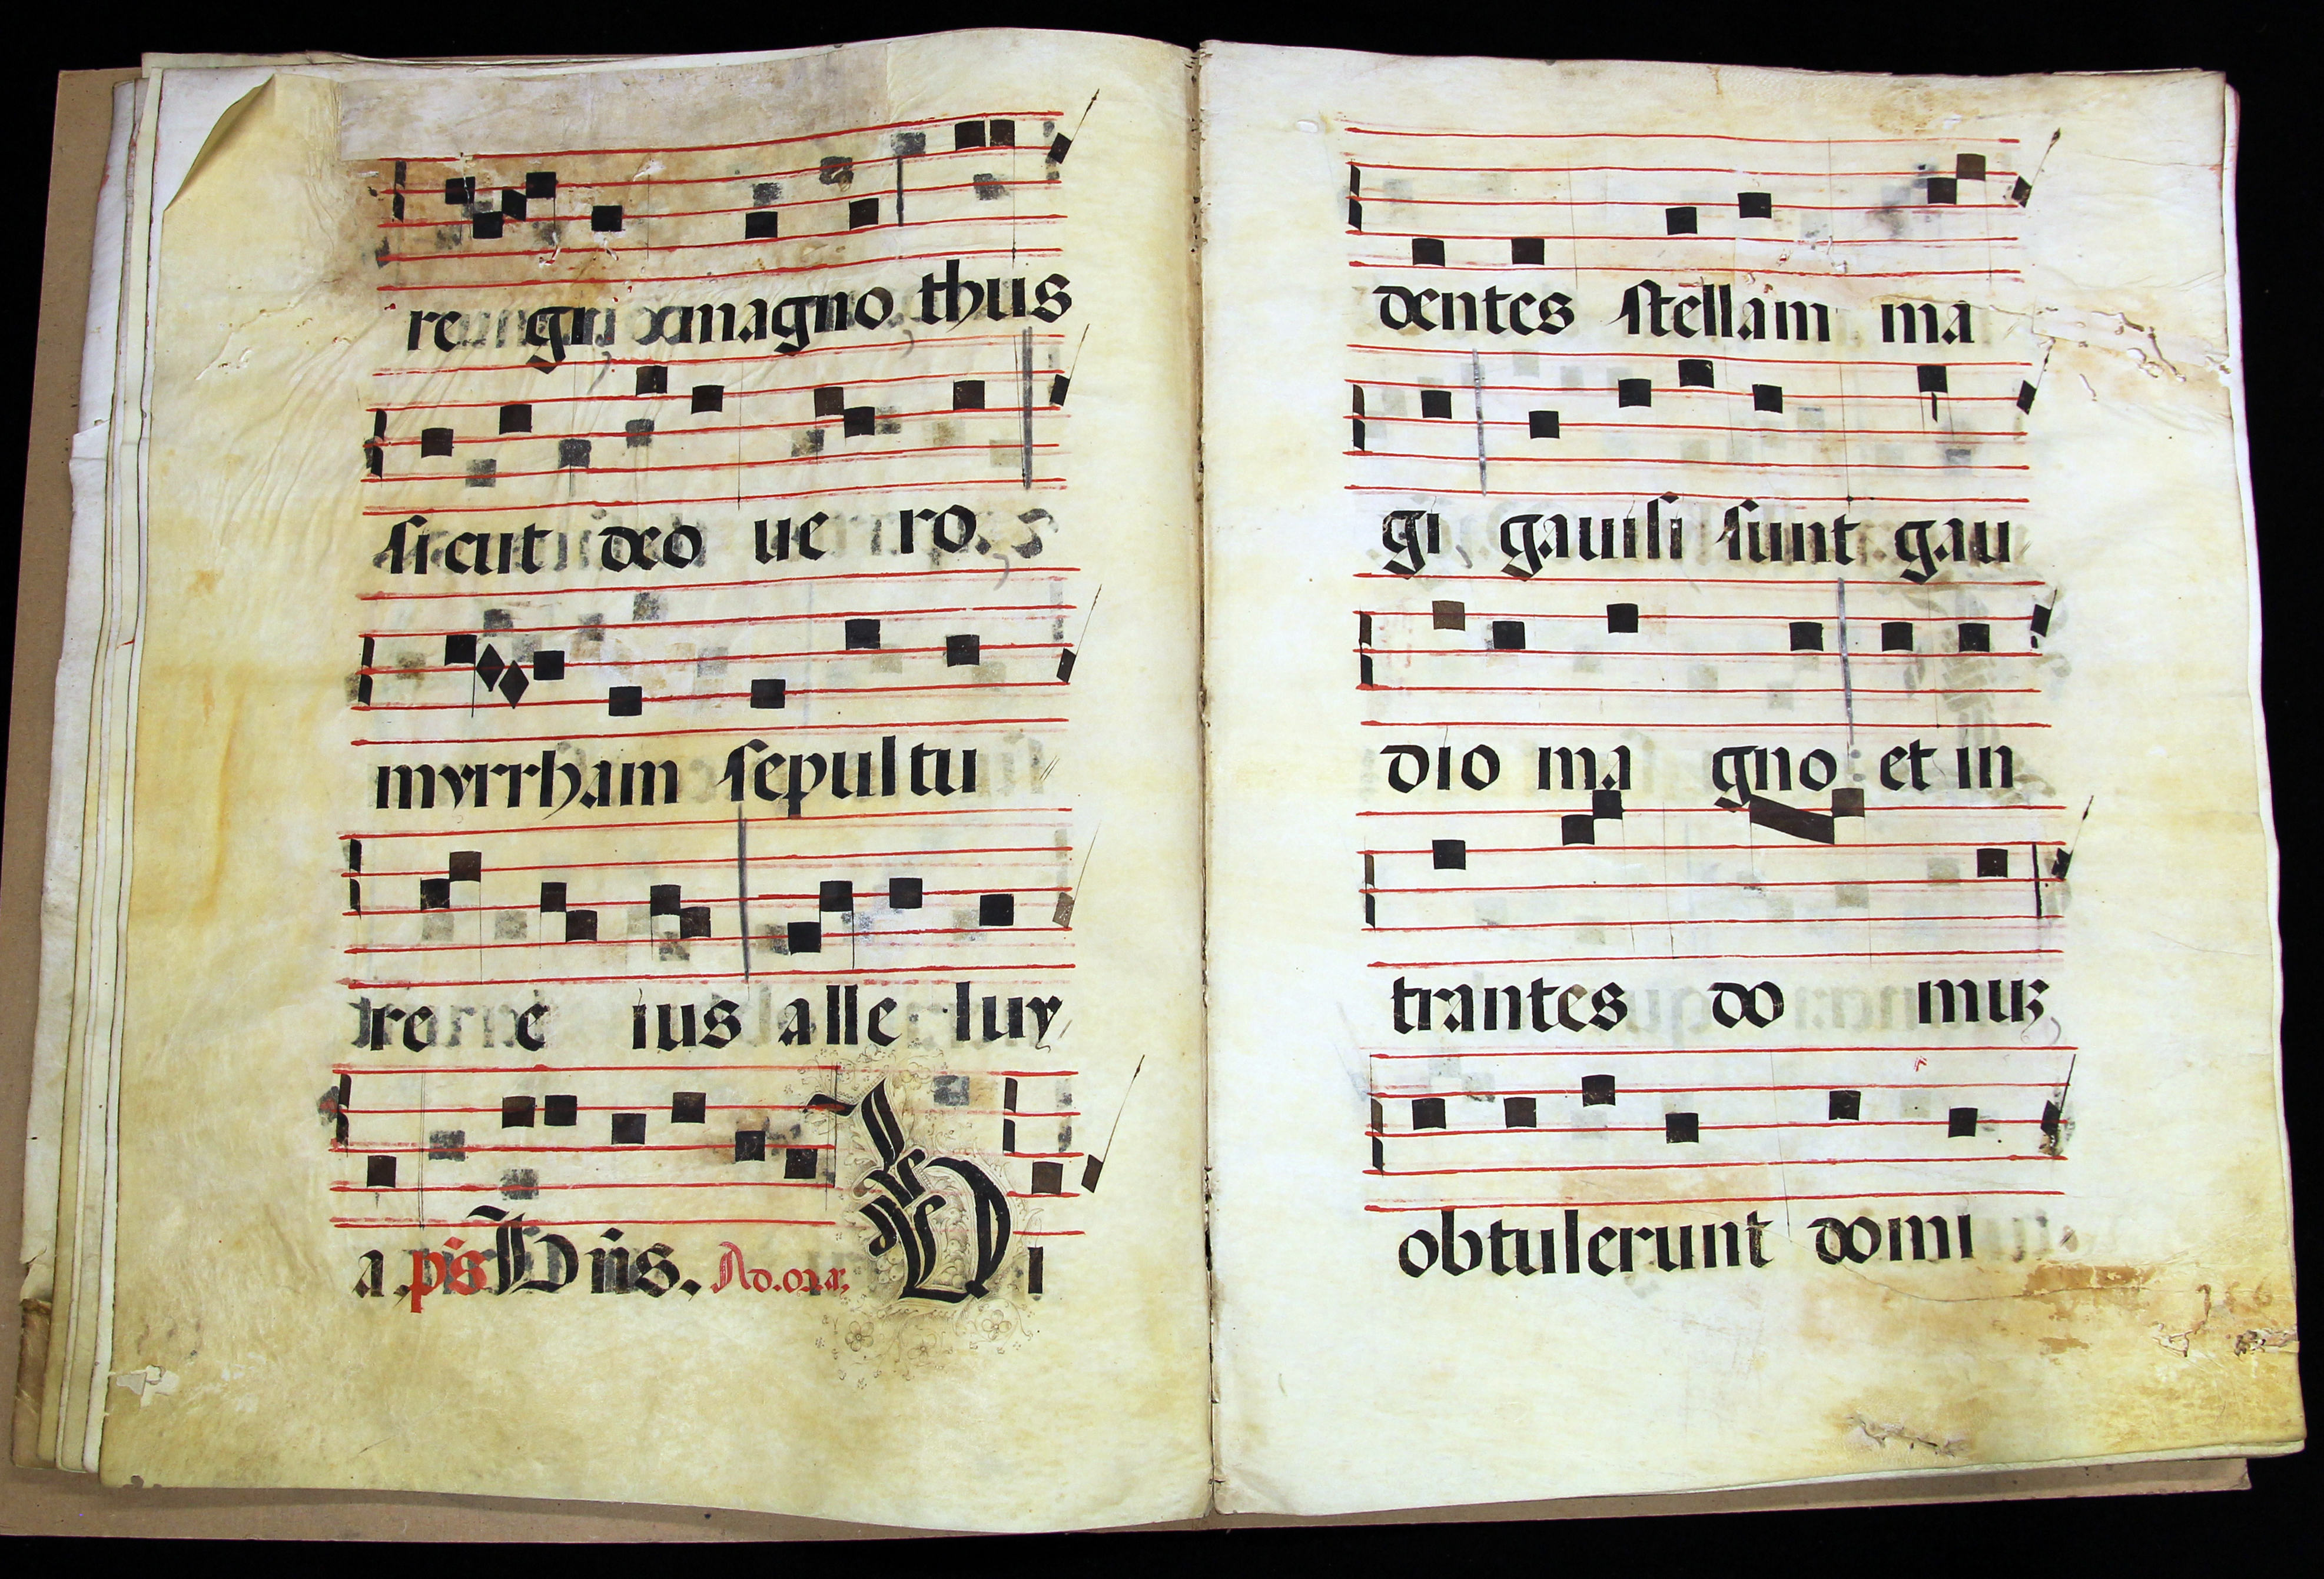 re gni magno thus
sicut deo ue ro.
myrrham sepultu
re e ius alle luy
a. ps Dñs. Ad.or.ar. Vi
dentes stellam ma
gi gauisi sunt gau
dio ma gno : et in
trantes do muz
obtulerunt domi